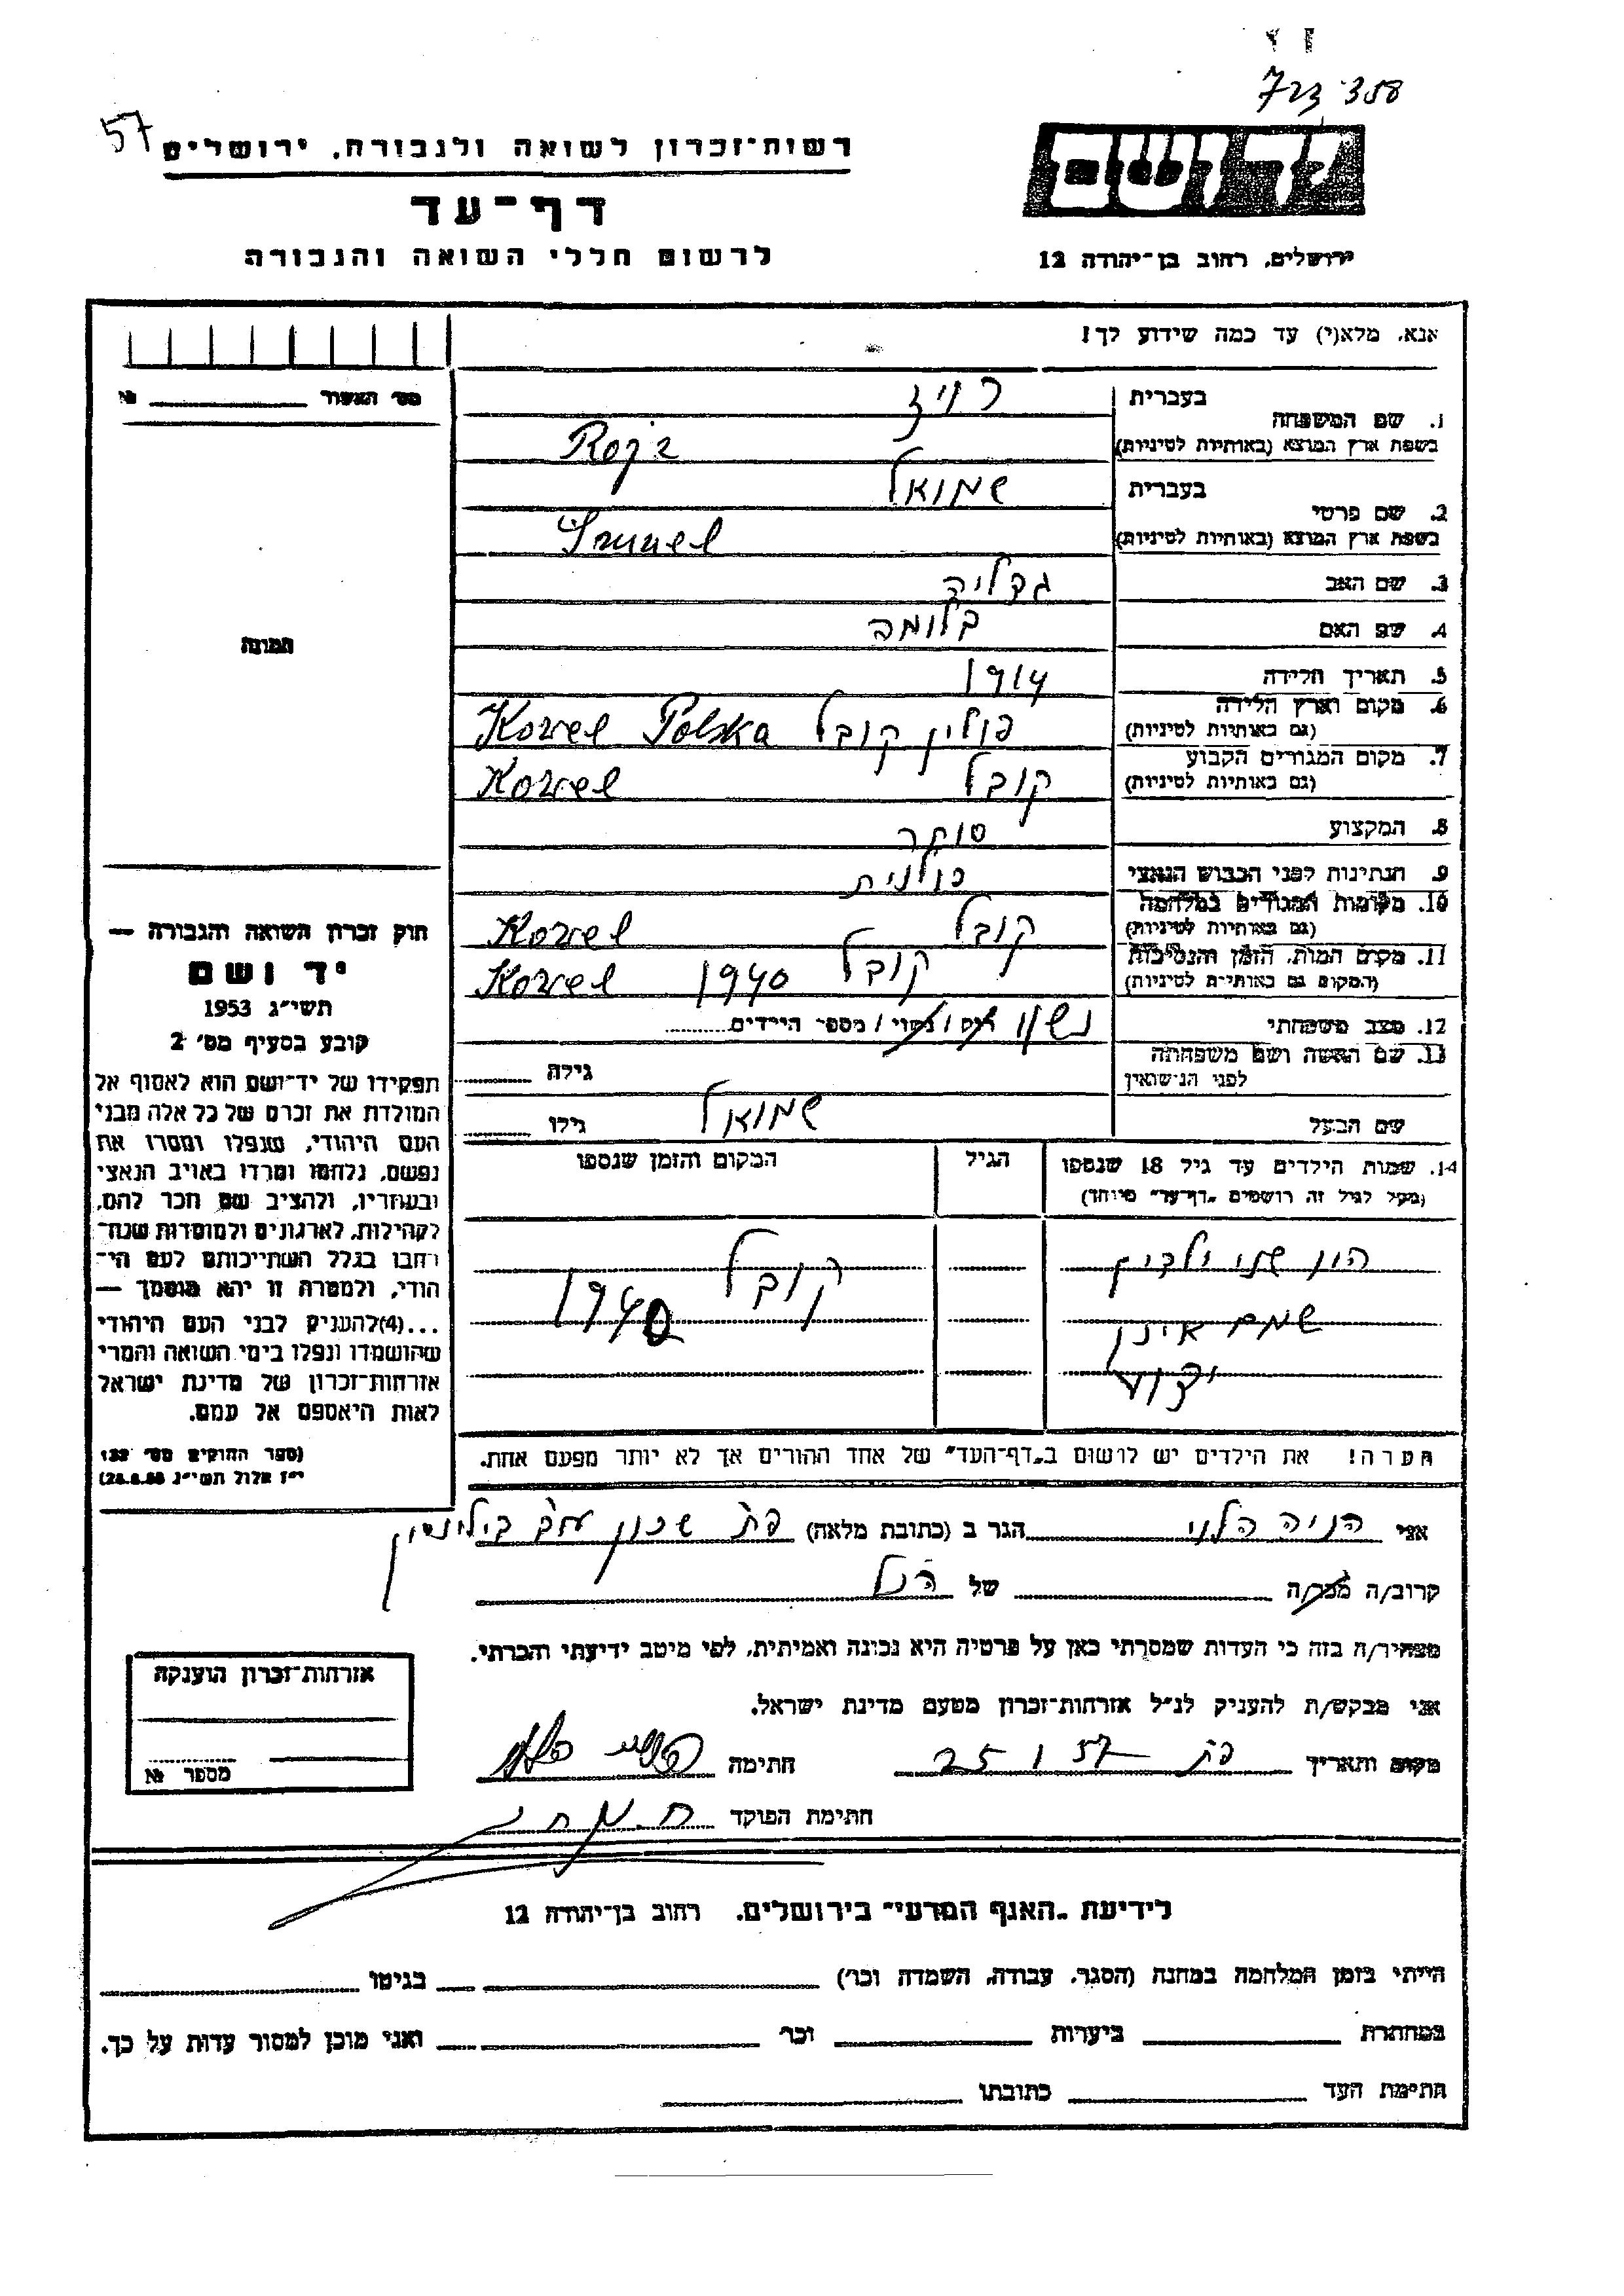 723 358
57
רשות־זכרון לשואה ולגבורה, ירושלים
יד ושם
דף־עד
לרשום חללי השואה והגבורה
ירושלים, רחוב בן־יהודה 12
אנא, מלא(י) עד כמה שידוע לך!
מס׳ האשור № 
1. שם המשפחה
בעברית רויז
בשפת ארץ המוצא (באותיות לטיניות) Rojz
2. שם פרטי
בעברית שמואל
בשפת ארץ המוצא (באותיות לטיניות)
3. שם האב גדליה
4. שם האם בלומה
5. תאריך הלידה 1914
6. מקום וארץ הלידה
(גם באותיות לטיניות) פולין קובל Kowel Polska
7. מקום המגורים הקבוע
(גם באותיות לטיניות) קובל Kowel
8. המקצוע סוחר
9. הנתינות לפני הכבוש הנאצי פולנית
10. מקומות המגורים במלחמה
(גם באותיות לטיניות) קובל Kowel
11. מקום המות, הזמן והנסיבות
(המקום גם באותיות לטיניות) קובל 1940 Kowel
12. מצב משפחתי נשוי רווק / נשוי / מספר הילדים
13. שם האשה ושם משפחתה
לפני הנישואין גילה
שם הבעל שמואל גילו
14. שמות הילדים עד גיל 18 שנספו הגיל המקום והזמן שנספו
(מעל לגיל זה רושמים „דף־עד” מיוחד)
היו שני ילדים קובל
שמם אינו 1940
ידוע
הערה! את הילדים יש לרשום ב„דף־העד” של אחד ההורים אך לא יותר מפעם אחת.
תמונה
חוק זכרון השואה והגבורה —
יד ושם
תשי״ג 1953
קובע בסעיף מס׳ 2
תפקידו של יד־ושם הוא לאסוף אל
המולדת את זכרם של כל אלה מבני
העם היהודי, שנפלו ומסרו את
נפשם, נלחמו ומרדו באויב הנאצי
ובעוזריו, ולהציב שם וזכר להם,
לקהילות, לארגונים ולמוסדות שנח־
רבו בגלל השתייכותם לעם הי־
הודי, ולמטרה זו יהא מוסמך —
...(4)להעניק לבני העם היהודי
שהושמדו ונפלו בימי השואה והמרי
אזרחות־זכרון של מדינת ישראל
לאות היאספם אל עמם.
(ספר החוקים מס׳ 132
י״ז אלול תשי״ג 28.8.53)
אני הניה הלוי הגר ב (כתובת מלאה) פת שכון עובדי בילינסון
קרוב/ה מכר/ה של הנ״ל
מצהיר/ה בזה כי העדות שמסרתי כאן על פרטיה היא נכונה ואמיתית, לפי מיטב ידיעתי והכרתי.
אני מבקש/ת להעניק לנ״ל אזרחות־זכרון מטעם מדינת ישראל.
מקום ותאריך פת 25 1 57 חתימה
חתימת הפוקד
אזרחות־זכרון הוענקה
מספר №
לידיעת „האגף המדעי” בירושלים, רחוב בן־יהודה 12
הייתי בזמן המלחמה במחנה (הסגר, עבודה, השמדה וכו׳) בגיטו
במחתרת ביערות וכו׳ ואני מוכן למסור עדות על כך.
חתימת העד כתובתו